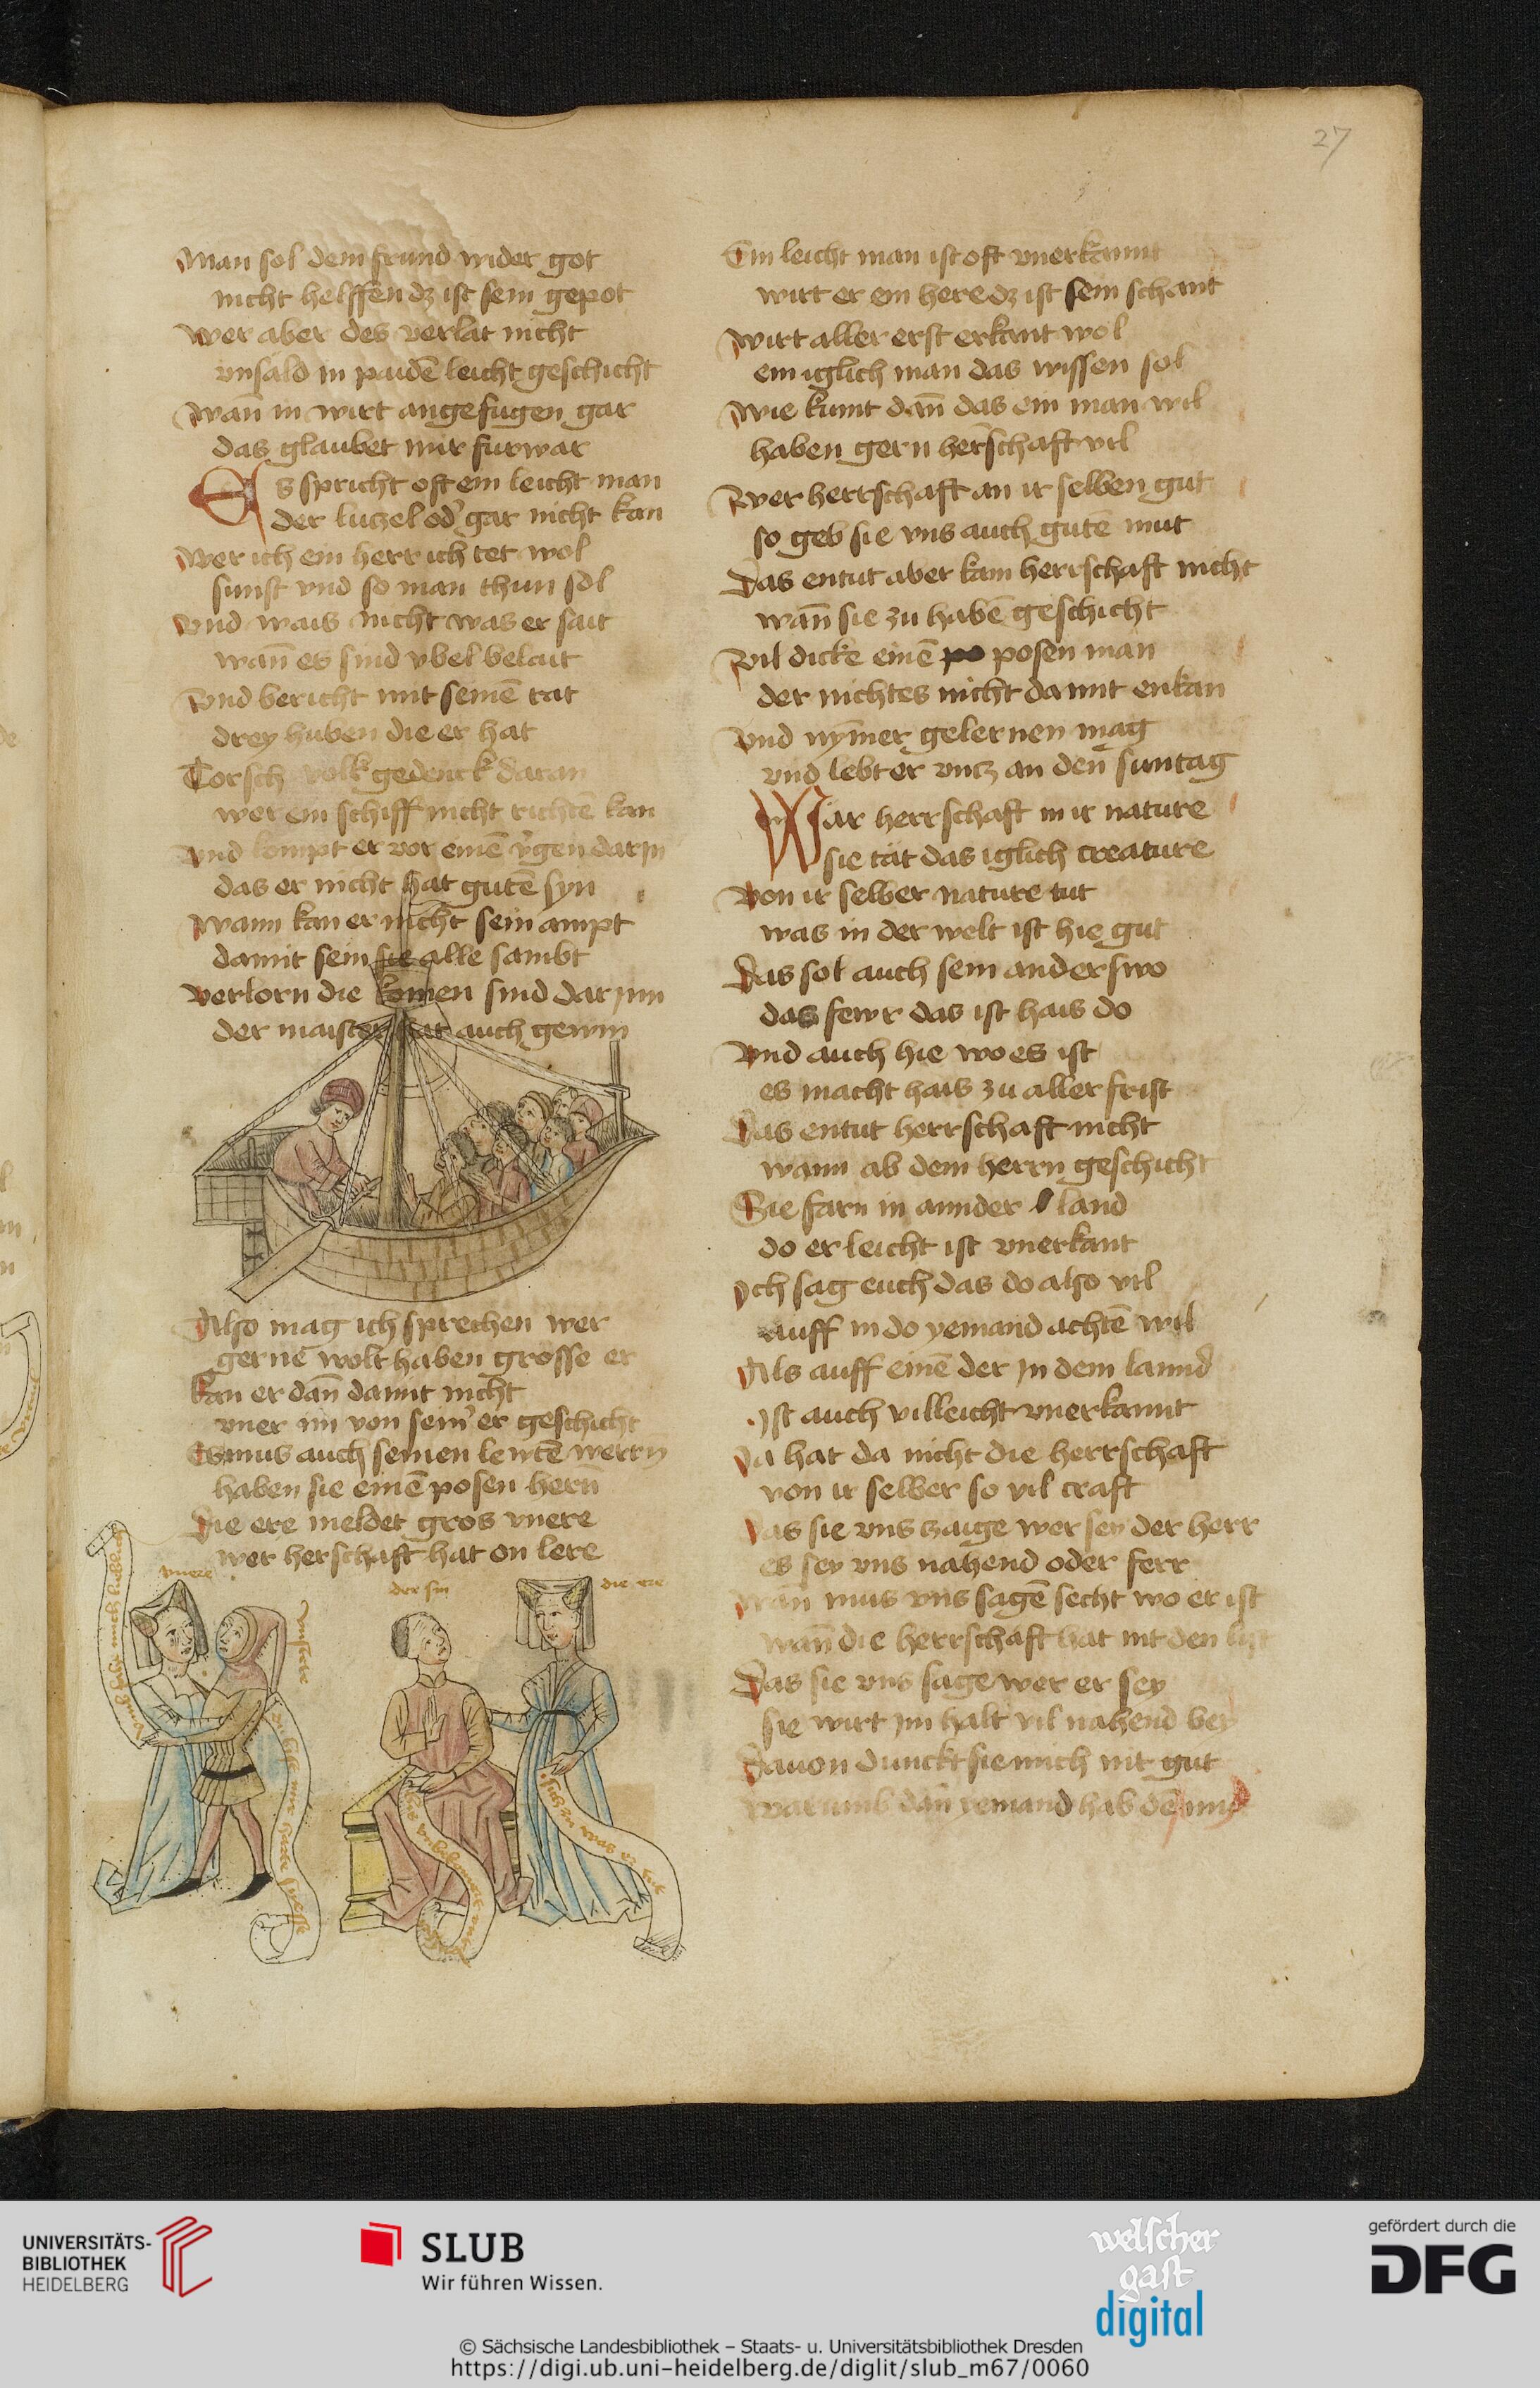 27
Man sol dem frund wider got
nicht helffen dz ist sein gepot
Wer aber des verlat nicht
vnsald in paidē leicht geschicht
Wan̄ in wirt angefugen gar
das glaubet mir furwar
Es spricht oft ein leicht man
der luczel od' gar nicht kan
Wer ich ein herr ich tet wol
sunst vnd so man thun sol
Vnd wais nicht was er sait
wan̄ es sind vbel belait
Vnd bericht mit seinē rat
drey huben die er hat
Torsch volk gedenck daran
wer ein schiff nicht richtē kan
Vnd kompt er vor einē darin
das er nicht hat gutē syn
Wann kan er nicht sein ampt
damit sein sie alle sambt
Verlorn die komen sind dar jnn
der maister hat auch gewin
Also mag ich sprechen wer
gerne wolt haben grosse er
Kan er dan̄ damit nicht
vner im von sein' er geschicht
Es mus auch seinen leutē werrn
haben sie einē posen hern̄
Die ere meldet gros vnere
wer herschaft hat on lere
vnere
der sin
die ere
vnstete
Ein leicht man ist oft vnerkannt
wirt er ein here dz ist sein schant
Wirt aller erst erkant wol
ein iglich man das wissen sol
Wie kumt dan̄ das ein man wil
haben gern herschaft vil
Wer herrschaft an ir selben gut
so geb sie vns auch gutē mut
Das entut aber kain herrschaft nicht
wan̄ sie zu habē geschicht
Vil dicke einē po posen man
der nichtes nicht damit enkan
Vnd nym̄er gelernen mag
vnd lebt er vncz an den suntag
War herrschaft in ir nature
sie tat das iglich creature
Von ir selber nature tut
was in der welt ist hie gut
Das sol auch sein anderswo
das fewr das ist hais do
Vnd auch hie wo es ist
es macht hais zu aller frist
Das entut herrschaft nicht
wann ab dem herrn geschicht
Sie farn in annder land
do er leicht ist vnerkant
Ich sag euch das do also vil
auff in do yemand achtē wil
Als auff einē der jn dem lannd
Ist auch villeicht vnerkannt
Ja hat da nicht die herrschaft
von ir selber so vil craft
Das sie vns zaige wer sey der herr
es sey vns nahend oder ferr
Man mus vns sagē secht wo er ist
wan̄ die herrschaft hat nit den list
Das sie vns sage wer er sey
sie wirt jm halt vil nahend bey
Dauon dunckt sie mich nit gut
warumb dan̄ yemand hab dē mut
UNIVERSITÄTS-
BIBLIOTHEK
HEIDELBERG
SLUB
Wir führen Wissen.
welscher
gast
digital
gefördert durch die
DFG
© Sächsische Landesbibliothek – Staats- u. Universitätsbibliothek Dresden
https://digi.ub.uni-heidelberg.de/diglit/slub_m67/0060